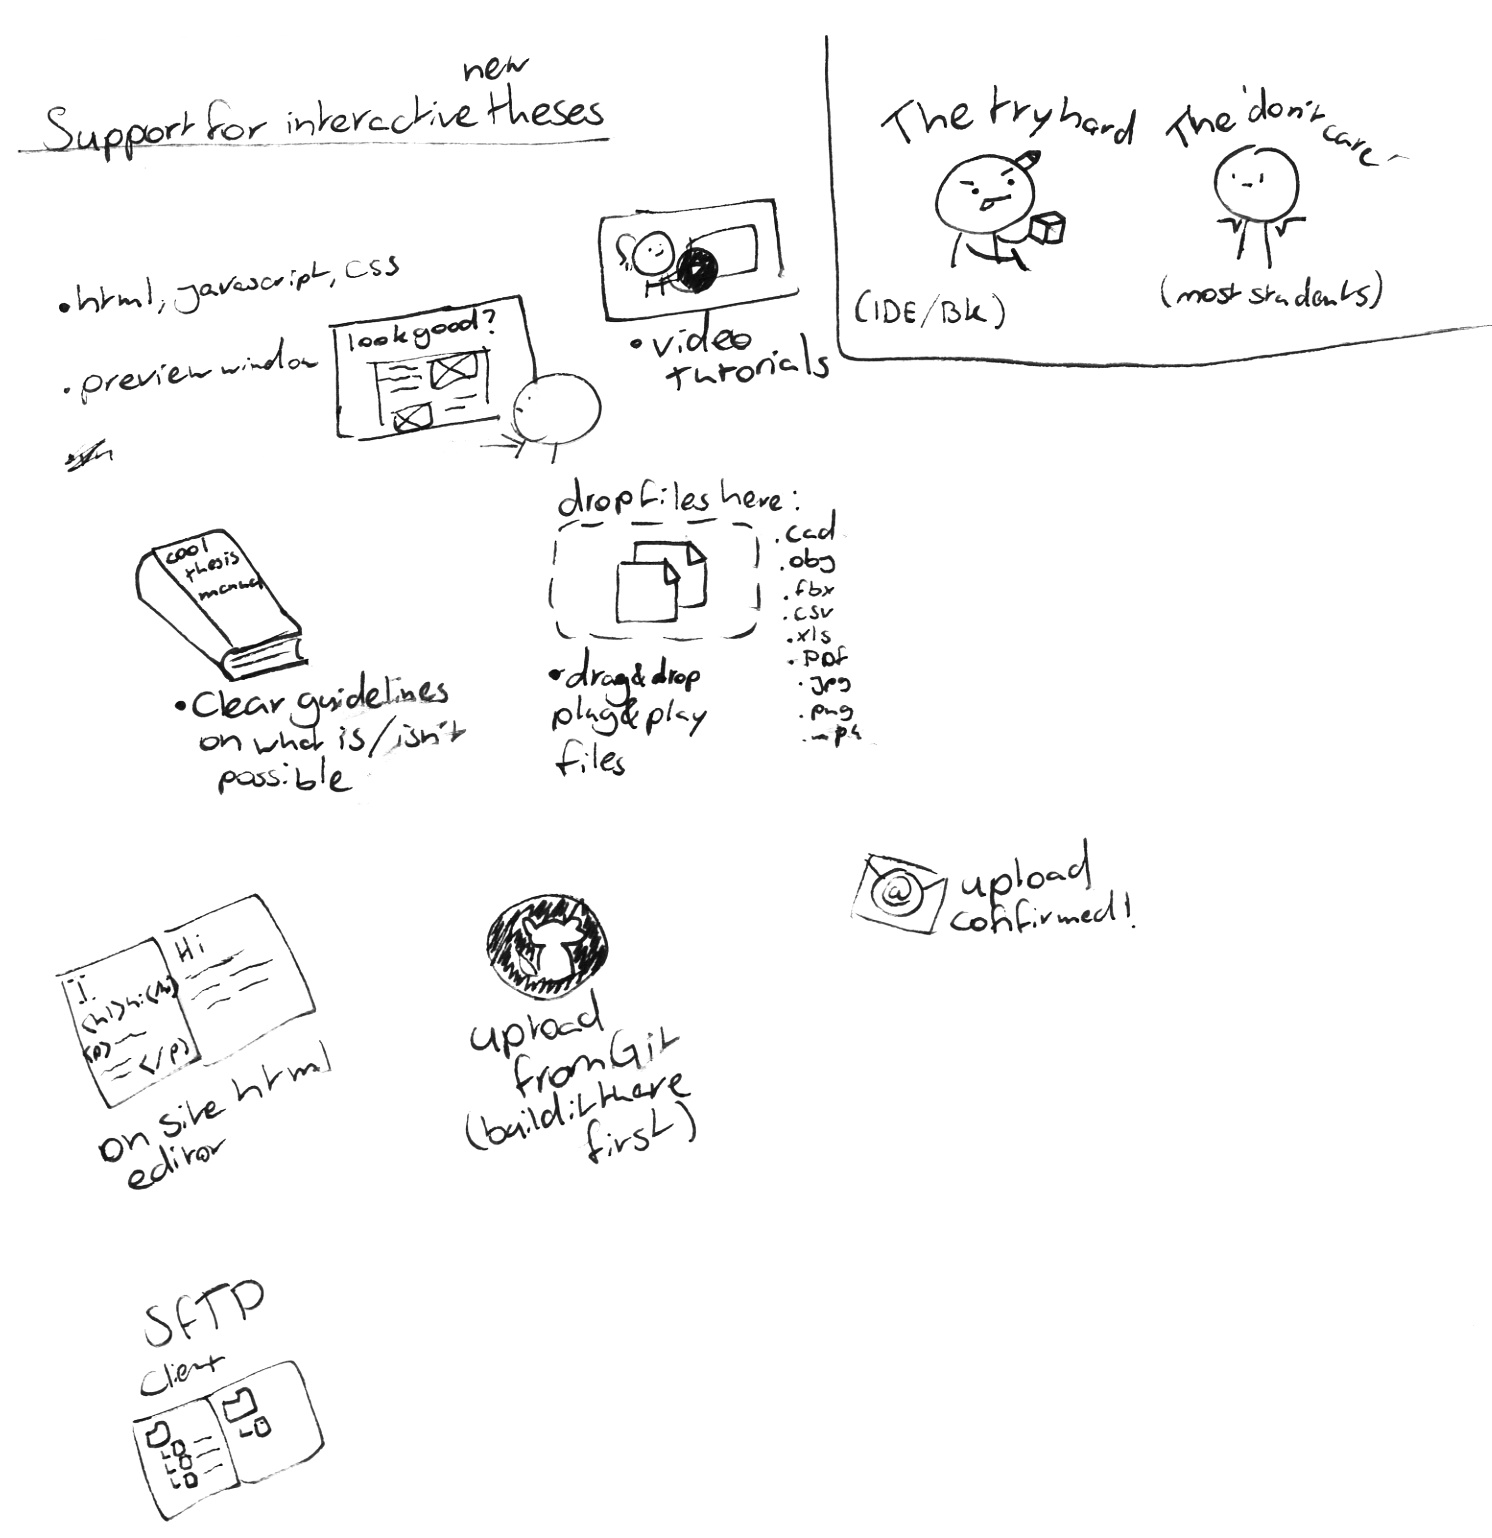 new
Support for interactive theses
The tryhard
The 'don't care'
(IDE/BK)
(most students)
• html, javascript, css
• preview window
look good?
• video
tutorials
cool
thesis
manual
• Clear guidelines
on what is/isn't
possible
drop files here:
.cad
.obj
.fbx
.csv
.xls
.PDF
.jpg
.png
.mp4
• drag & drop
plug & play
files
I.
<h1>hi</h1>
<p>
</p>
Hi
on site html
editor
upload
from Git
(build it there
first)
@
upload
confirmed!
SFTP
client